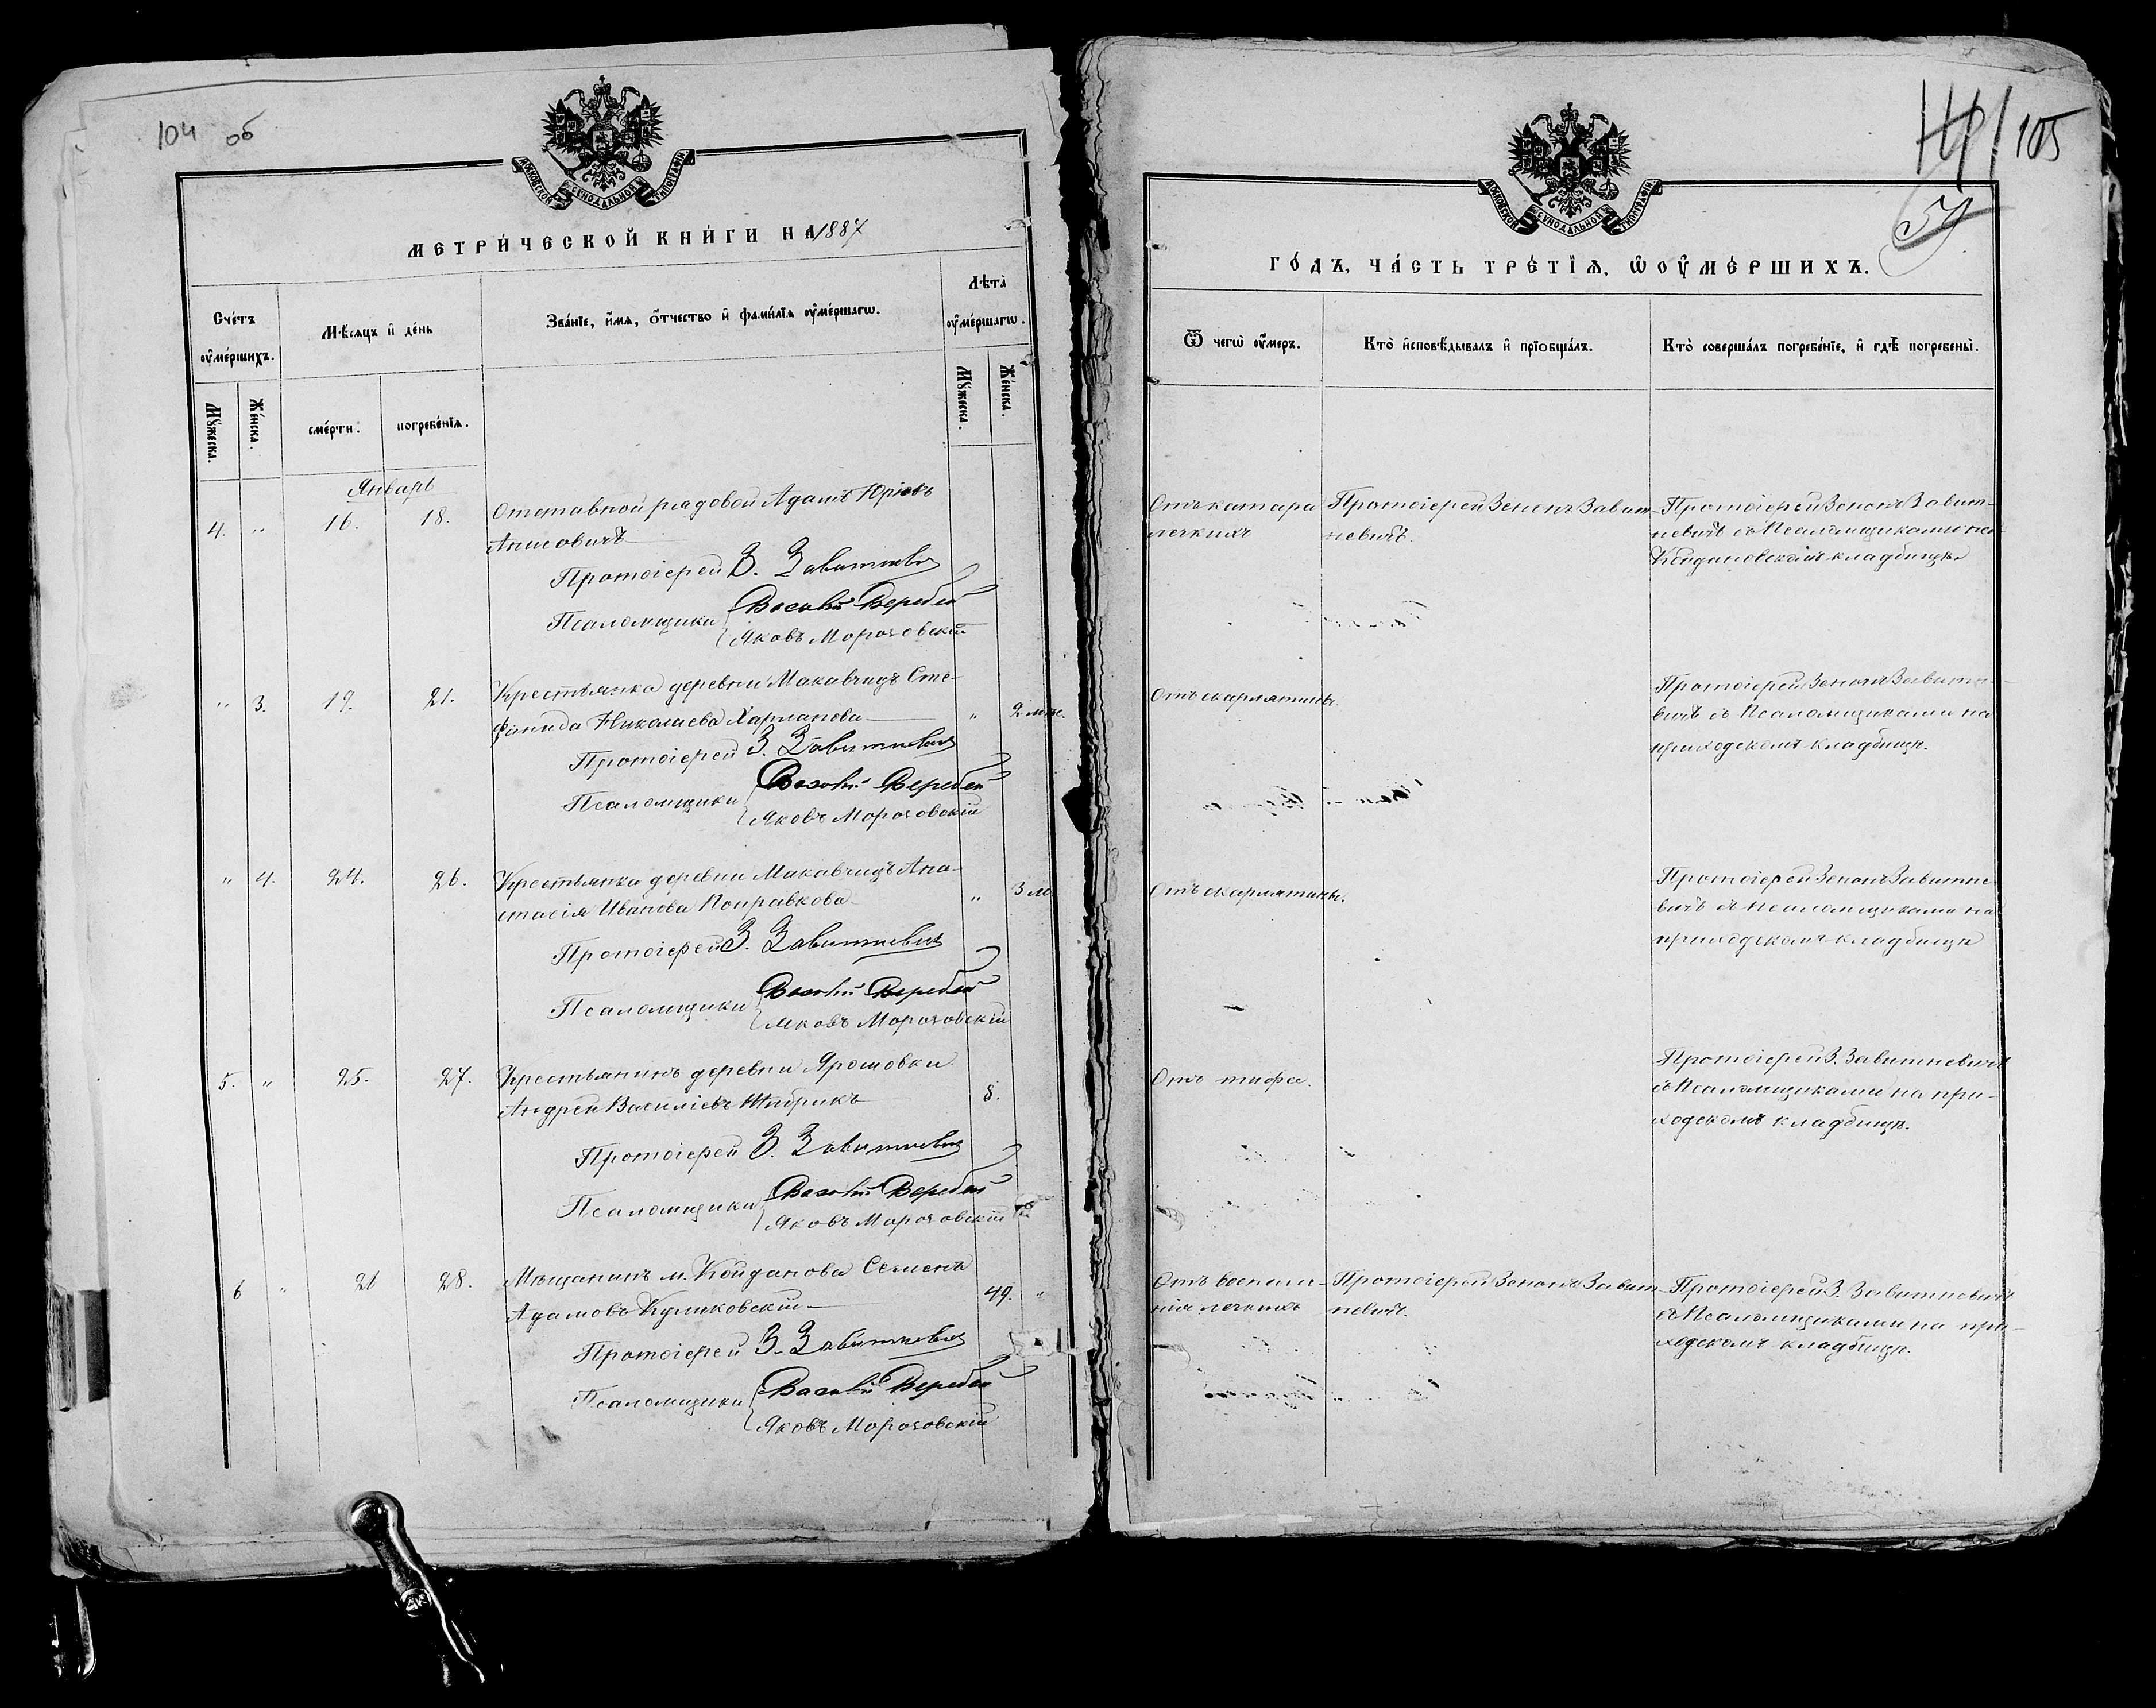 104 об
105
МОСКОВСКОЙ СѴНОДАЛЬНОЙ ТИПОГРАФІИ
МЕТРИ́ЧЕСКОЙ КНИ́ГИ НА 1887
Сче́тъ ᲂу҆ме́ршихъ.
Мѣ́сяцъ и҆ де́нь
Зва́нїе, и҆́мѧ, ѻ҆́тчество и҆ фами́лїѧ ᲂу҆ме́ршагѡ.
Лѣта̀ ᲂу҆ме́ршагѡ.
Мꙋ́жеска.
Же́нска.
сме́рти.
погребе́нїѧ.
Мꙋ́жеска.
Же́нска.
Январь
4. " 16. 18. Отставной рядовой Адамъ Юрiевъ
Протоіерей З. Завитневичъ
Псаломщики Василій Веребей
Яковъ Морозовскій
" 3. 19. 21. Крестьянка деревни Макавчицъ Сте-
фанида Николаева Харланова " 2 мѣс.
Протоіерей З. Завитневичъ
Псаломщики Василій Веребей
Яковъ Морозовскій
" 4. 24. 26. Крестьянка деревни Макавчицъ Ана-
стасія Иванова Поправкова " 3 м.
Протоіерей З. Завитневичъ
Псаломщики Василій Веребей
Яковъ Морозовскій
5. " 25. 27. Крестьянинъ деревни Ярошовки
Андрей Василіевъ 8.
Протоіерей З. Завитневичъ
Псаломщики Василій Веребей
Яковъ Морозовскій
6 " 26 28. Мѣщанинъ м. Койданова Семенъ
Адамовъ Куликовскій 49. "
Протоіерей З. Завитневичъ
Псаломщики Василій Веребей
Яковъ Морозовскій
МОСКОВСКОЙ СѴНОДАЛЬНОЙ ТИПОГРАФІИ
ГО́ДЪ, ЧА́СТЬ ТРЕ́ТЇѦ, Ѡ҆ ОУ҆МЕ́РШИХЪ.
Ѿ чегѡ̀ ᲂу҆́меръ.
Кто̀ и҆сповѣ́дывалъ и҆ прїобща́лъ.
Кто̀ соверша́лъ погребе́нїе, и҆ гдѣ̀ погребены̀.
Отъ катара Протоіерей Зенонъ Завит- Протоіерей Зенонъ Завит-
легкихъ невичъ. невичъ съ Псаломщиками на
Койдановскомъ кладбищѣ
Отъ скарлатины. Протоіерей Зенонъ Завитне-
вичъ съ Псаломщиками на
приходскомъ кладбищѣ.
Отъ скарлатины. Протоіерей Зенонъ Завитне-
вичъ съ Псаломщиками на
приходскомъ кладбищѣ
Отъ тифа. Протоіерей З. Завитневичъ
съ Псаломщиками на при-
ходскомъ кладбищѣ.
Отъ воспале- Протоіерей Зенонъ Завит- Протоіерей З. Завитневичъ
нія легкихъ невичъ. съ Псаломщиками на при-
ходскомъ кладбищѣ.